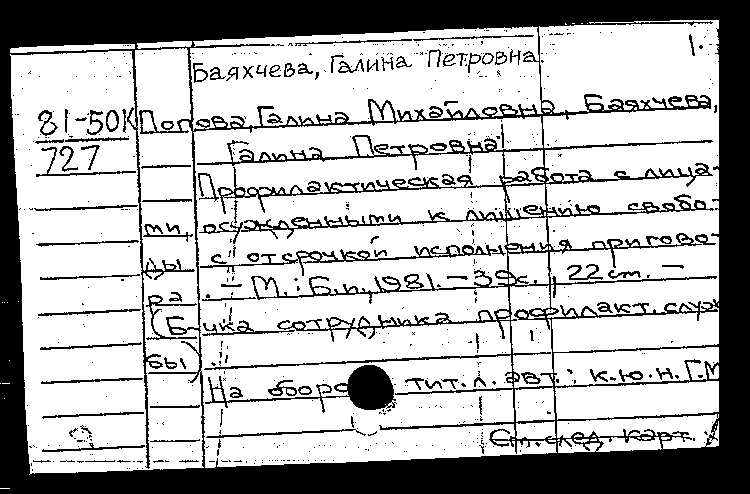 1.
Баяхчева, Галина Петровна.
81-50К Попова, Галина Михайловна, Баяхчева,
727 Галина Петровна
Профилактическая работа с лица-
ми, осужденными к лишению свобо-
ды с отсрочкой исполнения пригово-
ра. - М.: Б.и., 1981. - 39с., 22 см. -
(Б-чка сотрудника профилакт. служ
бы).
На оборо тит.л. авт.: к.ю.н. Г.М
См. след. карт.